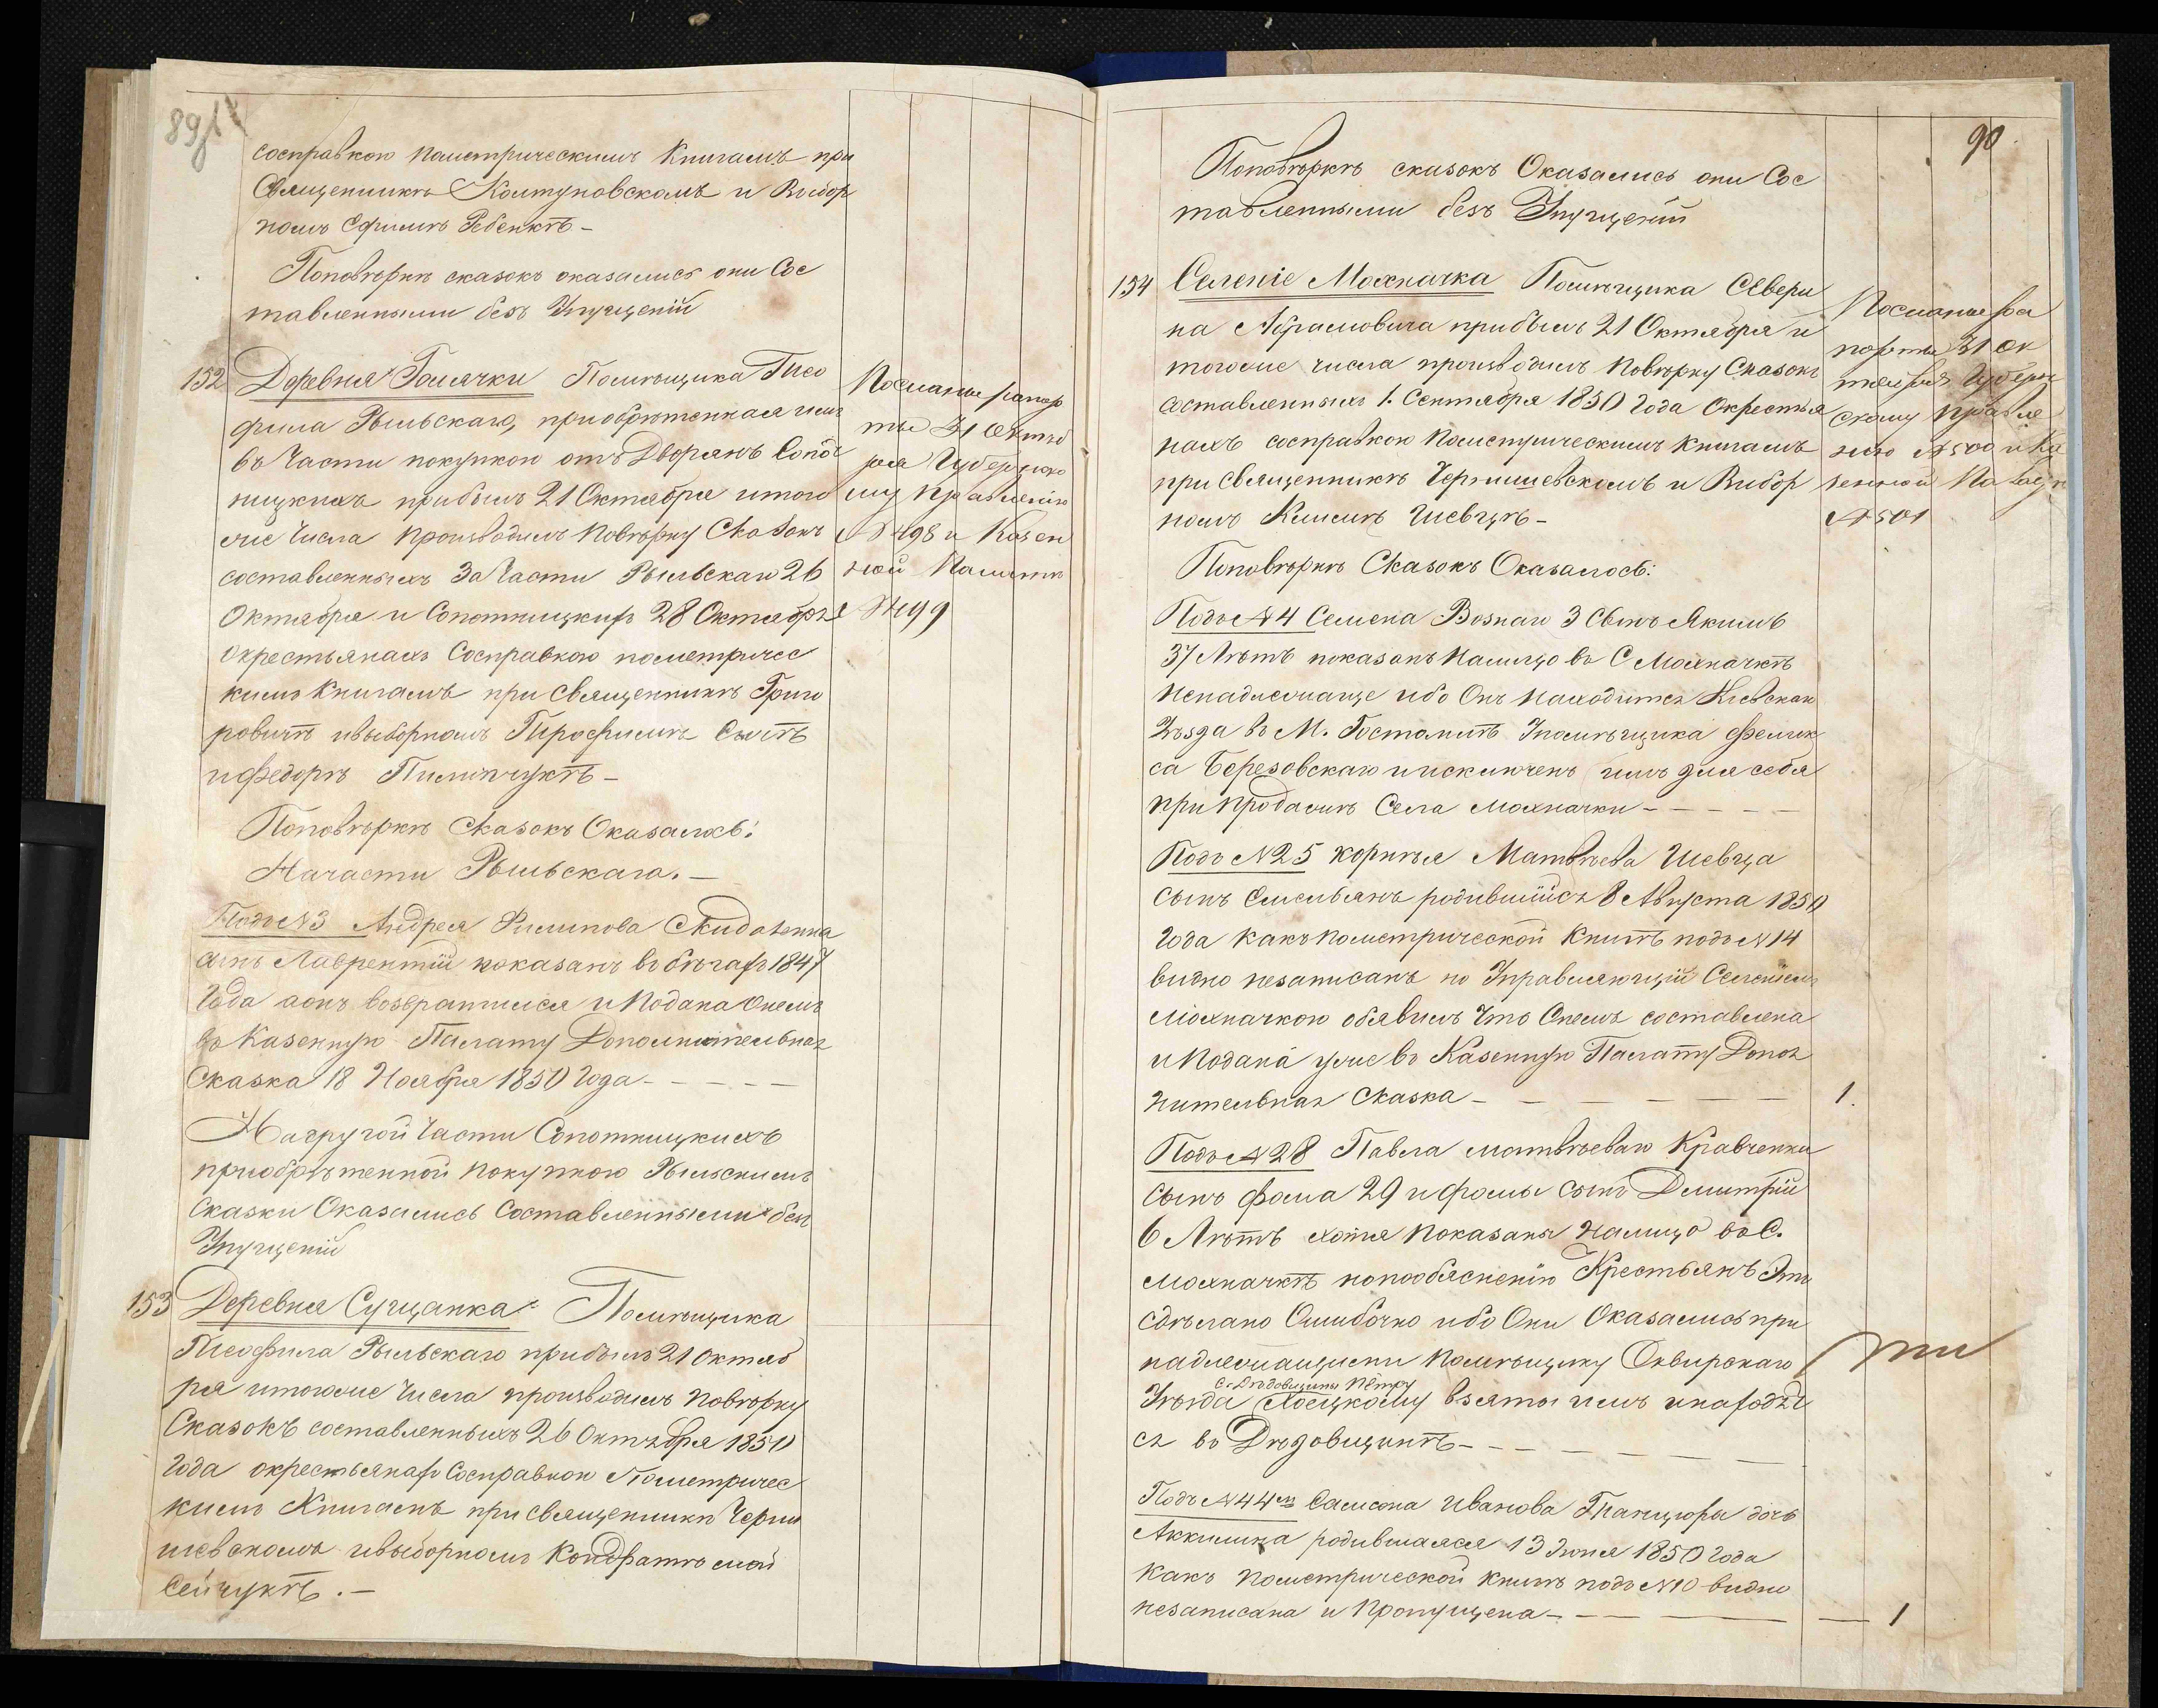 89
сосправкою пометрическимъ Книгамъ при
Священникѣ Колтуновскомъ и Выбор
номъ Ефимѣ Ребенкѣ –
Поповѣркѣ сказокъ оказались они Сос
тавленными безъ Упущеній
152 Деревня Голячки Помѣщика Тео
фила Рыльскаго, приобрѣтенная имъ
въ Части покупкою отъ Дворянъ Сопот
ницкихъ прибылъ 21 Октября итого
же Числа производилъ повѣрку Сказокъ
составленныхъ За Части Рыльскаго 26
Октября и Сопотницкихъ 28 Октября
окрестьянахъ Сосправкою пометричес
кимъ Книгамъ при Священникѣ Григо
ровичѣ ивыборномъ
ифедорѣ Пилипчукѣ –
Посланы рапор
ты 31 Октяб
ря Губернско
му Правленію
№ 498 и Казен
ной Палатѣ
№ 499
Поповѣркѣ Сказокъ Оказалось:
Начасти Рыльскаго. –
Подъ № 3 Андрея Филипова
сынъ Лаврентій показанъ вбѣгахъ 1847
Года аонъ возвратился иПодана Онемъ
въ Казенную Палату Дополнительная
Сказка 18 Ноября 1850 Года – – – – –
Надругой Части Сопотницкихъ
приобрѣтенной покупкою Рыльскимъ
Сказки Оказались Составленными без
Упущеній
153 Деревня Сущанка Помѣщика
Теофила Рыльскаго прибылъ 21 Октяб
ря итогоже Числа производилъ повѣрку
Сказокъ составленныхъ 26 Октября 1850
Года окрестьянахъ Сосправкою Пометричес
кимъ Книгамъ при священникѣ Черни
шевскомъ ивыборномъ Кондратѣ Мой
сейчукѣ. –
90.
Поповѣркѣ сказокъ Оказались они Сос
тавленными безъ Упущеній
154 Селеніе Мохначка Помѣщика Севери
на Абрамовича прибылъ 21 Октября и
тогоже числа производилъ повѣрку Сказокъ
составленныхъ 1. Сентября 1850 Года Окрестья
нахъ сосправкою пометрическимъ книгамъ
при Священникѣ Чернишевскомъ и Выбор
номъ Климѣ Шевцѣ –
Посланы ра
порты 31 Ок
тября Губерн
скому Правле
нію № 500 и Ка
зенной Палатѣ
№ 501
Поповѣркѣ Сказокъ Оказалось:
Подъ № 4 Семена Вознаго 3 Сынъ Якимъ
37 Лѣтъ показанъ налицо въ С Мохначкѣ
ненадлежаще ибо Онъ находится Кіевскаго
Уѣзда въ М. Гостомлѣ Упомѣщика Фелик
са Березовскаго иисключенъ имъ для себя
при продажѣ Села Мохначки – – – – –
Подъ № 25 Корнѣя Матвѣева Шевца
Сынъ Емельянъ родившійся 8 Августа 1850
Года какъ пометрической Книгѣ подъ № 14
видно незаписанъ но Управляющій Селеніемъ
Мохначкою обявилъ что Онемъ составлена
иПодана уже въ Казенную Палату Допол
нительная Сказка – – – – – – 1.
Подъ № 28 Павла матвѣеваго Кравченки
Сынъ Фома 29 иФомы сынъ Дмитрій
6 Лѣтъ хотя показаны налицо въ С.
Мохначкѣ нопообясненію Крестьянъ Это
сдѣлано Ошибочно ибо Они Оказались при
надлежащими помѣщику Сквирскаго
С. Дѣдовщины Петру
Уѣзда взяты имъ инаходят
ся во Дѣдовщинѣ – – – – – – –
Подъ № 44 Самсона Иванова дочь
Аккилина родившаяся 13 Іюня 1850 Года
Какъ пометрической книгѣ подъ № 10 видно
незаписана и пропущена – – – – – 1